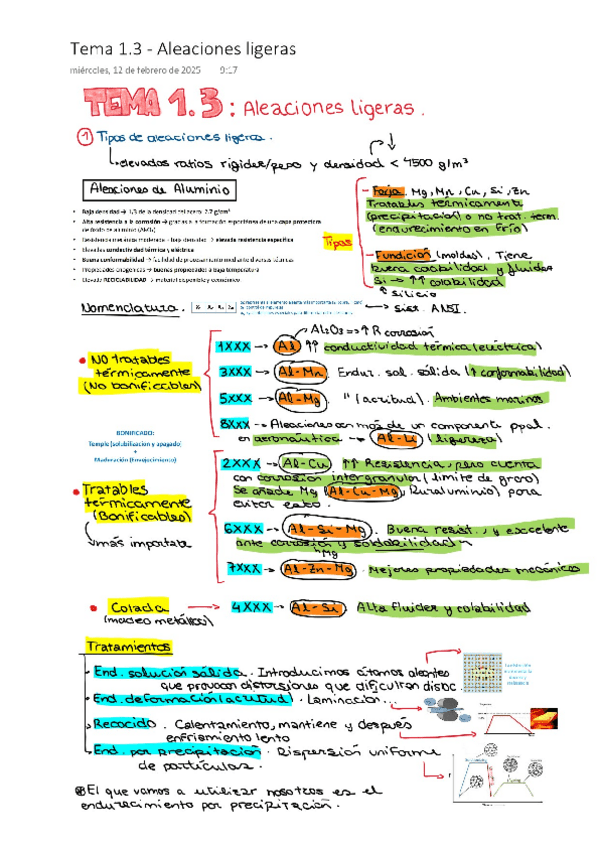 Tema 1.3 - Aleaciones ligeras
miércoles, 12 de febrero de 2025 9:17
TEMA 1.3: Aleaciones ligeras.
① Tipos de aleaciones ligeras.
↳ elevados ratios rigidez/peso y densidad < 4500 g/m³
Aleaciones de Aluminio
• Baja densidad → 1/3 de la densidad del acero 2.7 g/cm³
• Alta resistencia a la corrosión → gracias a la formación espontánea de una capa protectora
de óxido de aluminio (Al₂O₃)
• Resistencia mecánica moderada + baja densidad → elevada resistencia específica
• Elevadas conductividad térmica y eléctrica
• Buena conformabilidad → facilidad de procesamiento mediante diversas técnicas
• Propiedades criogénicas → buenas propiedades a baja temperatura
• Elevado RECICLABILIDAD → material disponible y económico
Tipos
- Forja. Mg, Mn, Cu, Si, Zn
Tratables térmicamente
(precipitación) o no trat. term.
(endurecimiento en frío)
- Fundición (moldes). Tiene
buena colabilidad y fluidez
Si → ↑↑ colabilidad
↑ silicio
Nomenclatura.
→ sist. ANSI.
• NO tratables
térmicamente
(No bonificables)
Al₂O₃ => ↑ R corrosión
1XXX → Al ↑↑ conductividad térmica (eléctrica)
3XXX → Al-Mn. Endur. sol. sólida (↑ conformabilidad)
5XXX → Al-Mg. " (acritud). Ambientes marinos
8XXX → Aleaciones con más de un componente ppal.
en aeronáutica → Al-Li (ligereza)
BONIFICADO:
Temple (solubilización y apagado)
+
Maduración (Envejecimiento)
• Tratables
térmicamente
(Bonificables)
↳ más importante
2XXX → Al-Cu ↑↑ Resistencia, pero cuenta
con corrosión intergranular (límite de grano)
Se añade Mg (Al-Cu-Mg, Duraluminio) para
evitar esto.
6XXX → Al-Si-Mg. Buena resist., y excelente
ante corrosión y soldabilidad
Mg
7XXX → Al-Zn-Mg. Mejores propiedades mecánicas
• Colada → 4XXX → Al-Si. Alta fluidez y colabilidad
(moldeo metálico)
Tratamientos
- End. solución sólida. Introducimos átomos aleantes
que provocan distorsiones que dificultan disloc.
- End. deformación (acritud). Laminación...
- Recocido. Calentamiento, mantiene y después
enfriamiento lento
- End. por precipitación. Dispersión uniforme
de partículas.
⊛ El que vamos a utilizar nosotros es el
endurecimiento por precipitación.